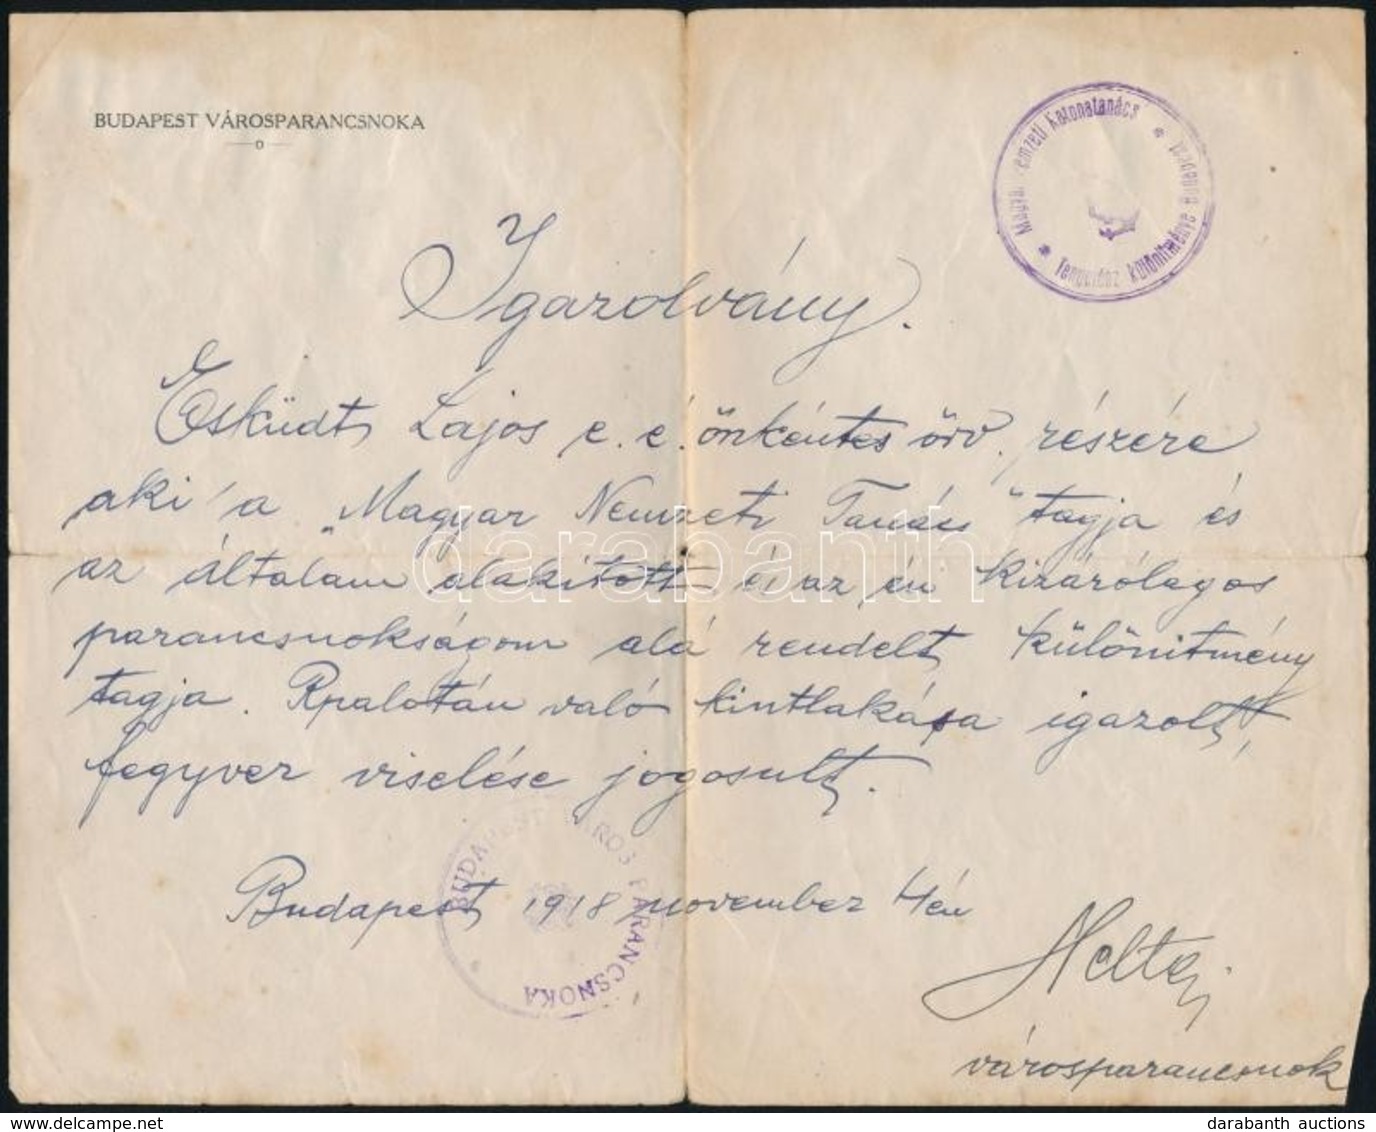 BUDAPEST VÁROSPARANCSNOKA
Magyar Nemzeti Katonatanács * Tengerész különítménye Budapest *
Igazolvány.
Esküdt Lajos e. é. önkéntes őrv. részére
aki a "Magyar Nemzeti Tanács" tagja és
az általam alakított és az én kizárólagos
parancsnokságom alá rendelt különitmény
tagja. Rpalotán való kintlakása igazolt,
fegyver viselése jogosult.
BUDAPEST VÁROS PARANCSNOKA
Budapest 1918 november 4én
Heltai
városparancsnok
darabanth
© darabanth auctions